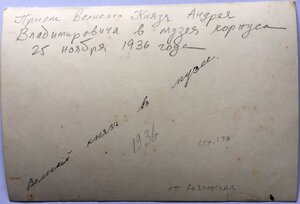 Прием Великого Князя Андрея
Владимировича в музея корпуса
25 ноября 1936 года
Великий князь в музее.
1936.
стр. 776
от